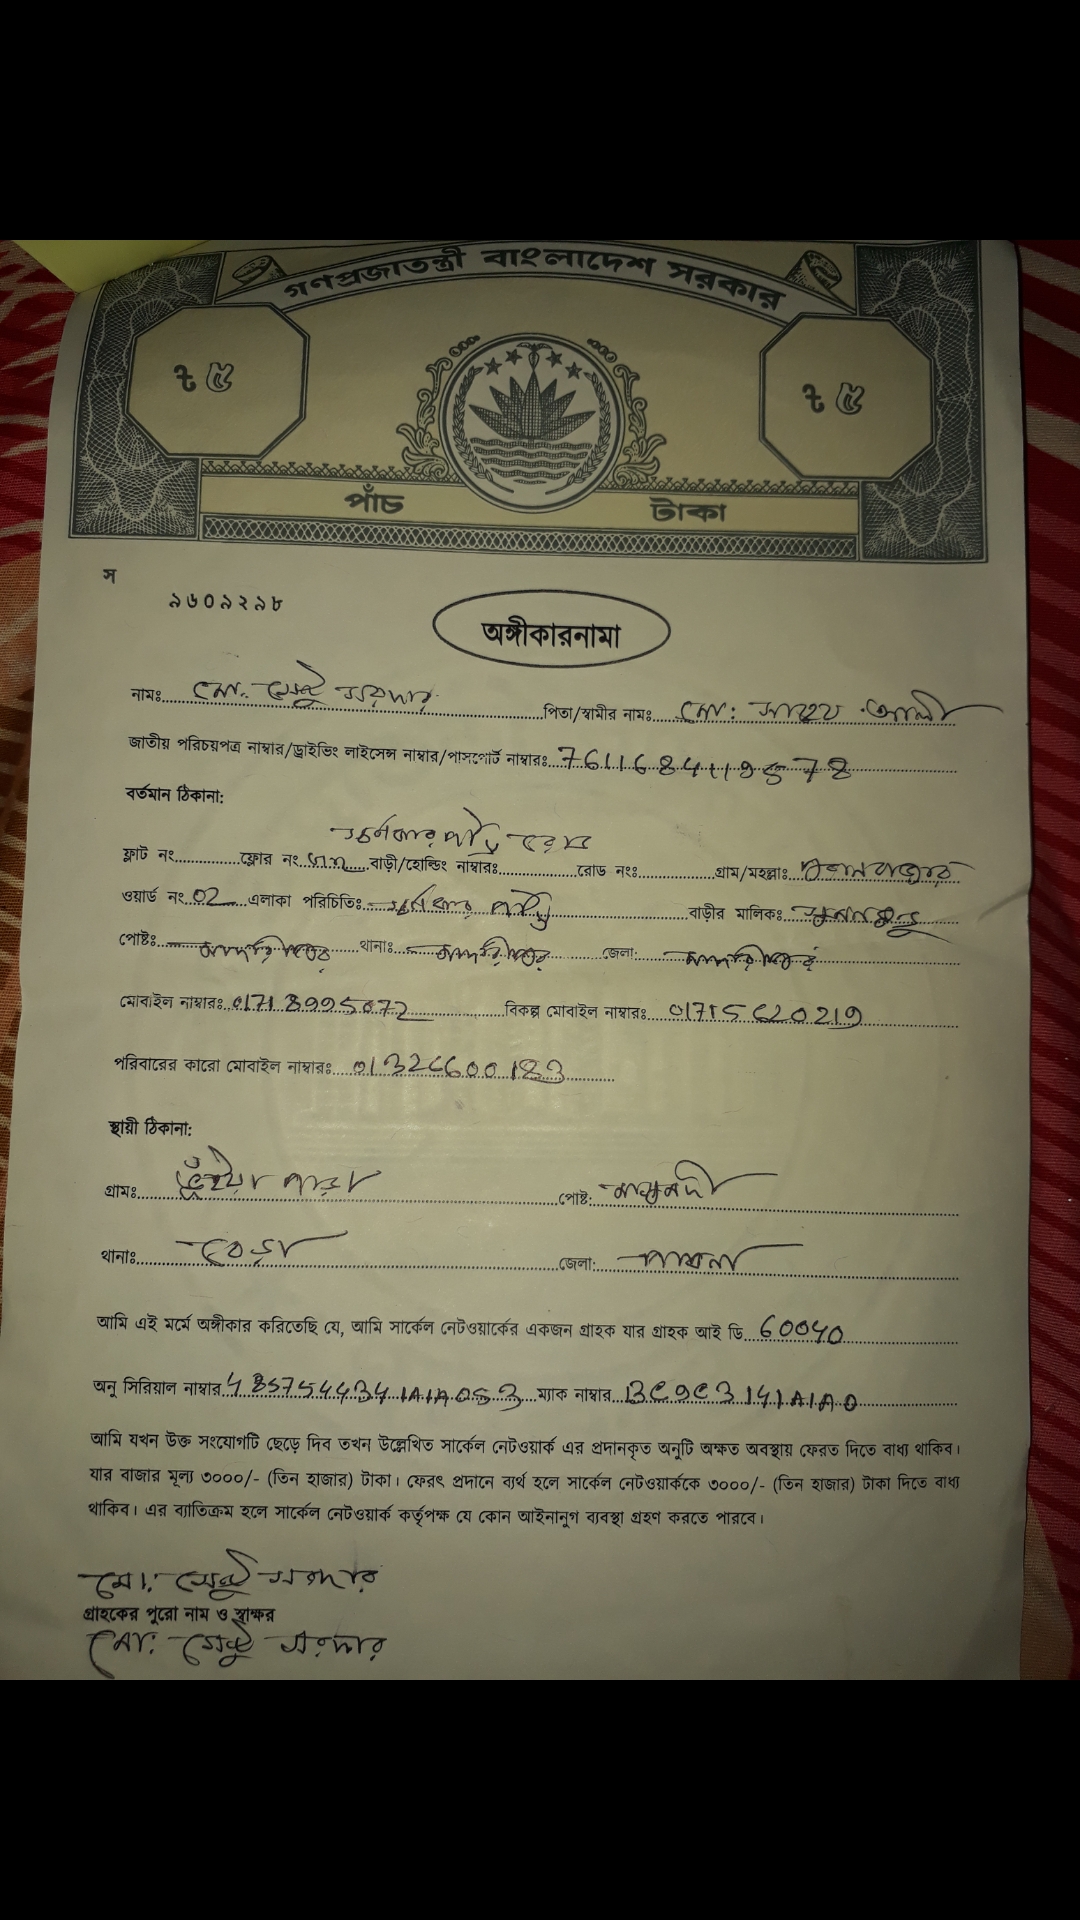 গণপ্রজাতন্ত্রী বাংলাদেশ সরকার
৳ ৫ ৳ ৫
পাঁচ টাকা
স
৯৬০৯২৯৮
অঙ্গীকারনামা
নামঃ মো: সেন্টু সরদার পিতা/স্বামীর নামঃ মো: আলী
জাতীয় পরিচয়পত্র নাম্বার/ড্রাইভিং লাইসেন্স নাম্বার/পাসপোর্ট নাম্বারঃ
বর্তমান ঠিকানা:
স্বর্নকার পট্টি
ফ্লাট নং ফ্লোর নং বাড়ী/হোল্ডিং নাম্বারঃ রোড নংঃ গ্রাম/মহল্লাঃ
ওয়ার্ড নং 02 এলাকা পরিচিতিঃ স্বর্নকার পট্টি বাড়ীর মালিকঃ
পোষ্টঃ মাদারীপুর থানাঃ মাদারীপুর জেলা: মাদারীপুর
মোবাইল নাম্বারঃ 01718995072 বিকল্প মোবাইল নাম্বারঃ 01715620219
পরিবারের কারো মোবাইল নাম্বারঃ
স্থায়ী ঠিকানা:
গ্রামঃ ভুঁইয়া পাড়া পোষ্ট:
থানাঃ বেড়া জেলা: পাবনা
আমি এই মর্মে অঙ্গীকার করিতেছি যে, আমি সার্কেল নেটওয়ার্কের একজন গ্রাহক যার গ্রাহক আই ডি 60040
অনু সিরিয়াল নাম্বার 4857544341A1A053 ম্যাক নাম্বার BC9C3141A1A0
আমি যখন উক্ত সংযোগটি ছেড়ে দিব তখন উল্লেখিত সার্কেল নেটওয়ার্ক এর প্রদানকৃত অনুটি অক্ষত অবস্থায় ফেরত দিতে বাধ্য থাকিব।
যার বাজার মূল্য ৩০০০/- (তিন হাজার) টাকা। ফেরৎ প্রদানে ব্যর্থ হলে সার্কেল নেটওয়ার্ককে ৩০০০/- (তিন হাজার) টাকা দিতে বাধ্য
থাকিব। এর ব্যাতিক্রম হলে সার্কেল নেটওয়ার্ক কর্তৃপক্ষ যে কোন আইনানুগ ব্যবস্থা গ্রহণ করতে পারবে।
মো: সেন্টু সরদার
গ্রাহকের পুরো নাম ও স্বাক্ষর
মো: সেন্টু সরদার